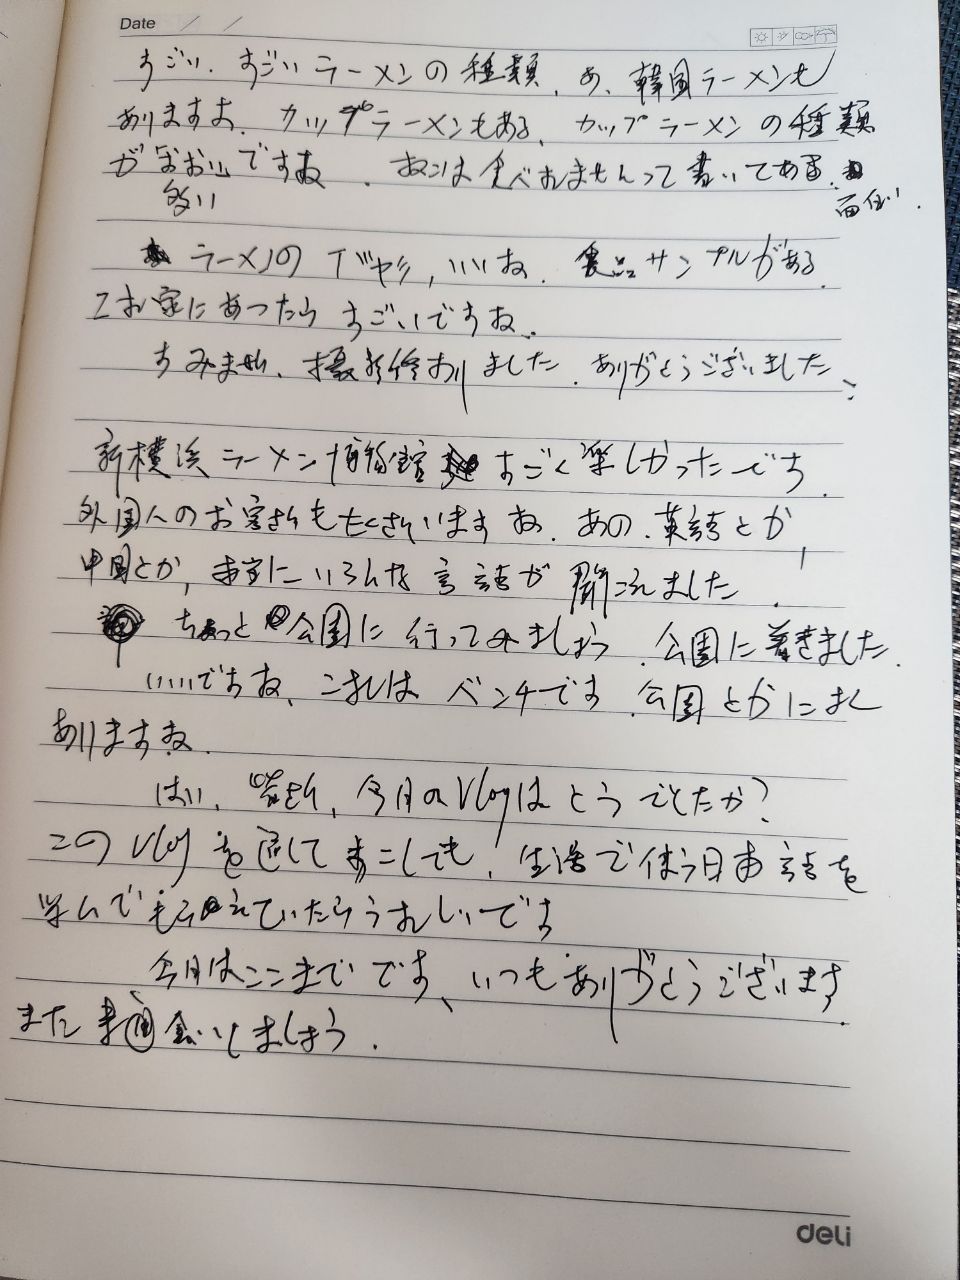 Date / /
すごい.すごいラーメンの種類、あ、韓国ラーメンも
ありますよ.カップラーメンもある、カップラーメンの種類
が「おおい」ですね.ねこは食べれませんって書いてある.
多い
面白い.
ラーメンの ,いいね.食品サンプルがある.
お家にあったらすごいですね.
すみません、撮影終わりました.ありがとうございました.
新横浜ラーメン博物館 すごく楽しかったです.
外国人のお客さんもたくさんいますね.あの、英語とか,
中国とか,本当にいろんな言語が聞こえました.
ちょっと公園に行ってみましょう.公園に着きました.
いいですね、これはベンチです.公園とかによく
ありますね.
はい,皆さん,今月のVlogはどうでしたか?
このVlogを通して少しでも,生活で使う日本語を
学んでもらえていたらうれしいです
今月はここまでです、いつもありがとうございます.
また来週会いしましょう.
deli